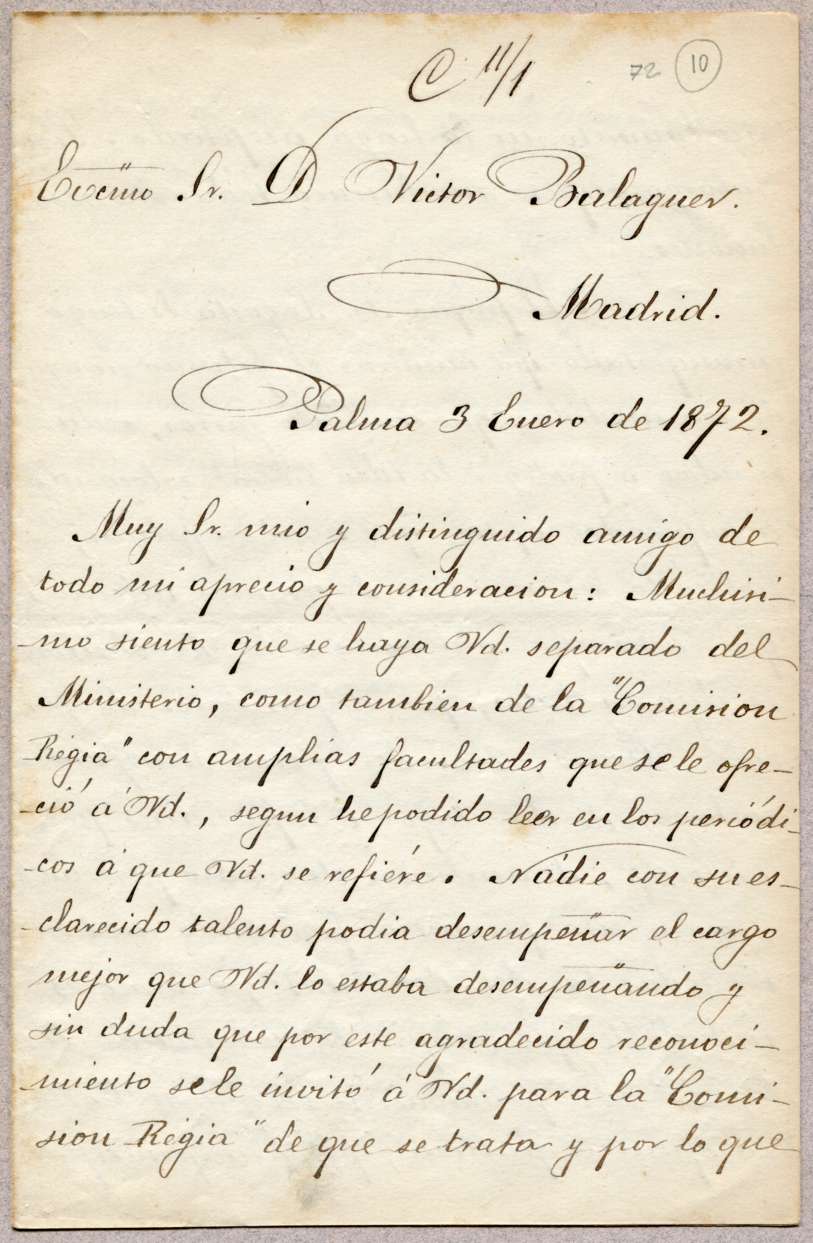 C 11/1 72 10
Excmo Sr. D Victor Balaguer.
Madrid.
Palma 3 Enero de 1872.
Muy Sr. mio y distinguido amigo de
todo mi aprecio y consideracion: Muchisi-
-mo siento que se haya Vd. separado del
Ministerio, como tambien de la "Comision
Régia" con amplias facultades que se le ofre-
-ció á Vd., segun he podido leer en los periódi-
-cos á que Vd. se refiére. Nádie con su es-
-clarecido talento podia desempeñar el cargo
mejor que Vd. lo estaba desempeñando y
sin duda que por este agradecido reconoci-
-miento se le invitó á Vd. para la "Comi-
sion Régia" de que se trata y por lo que